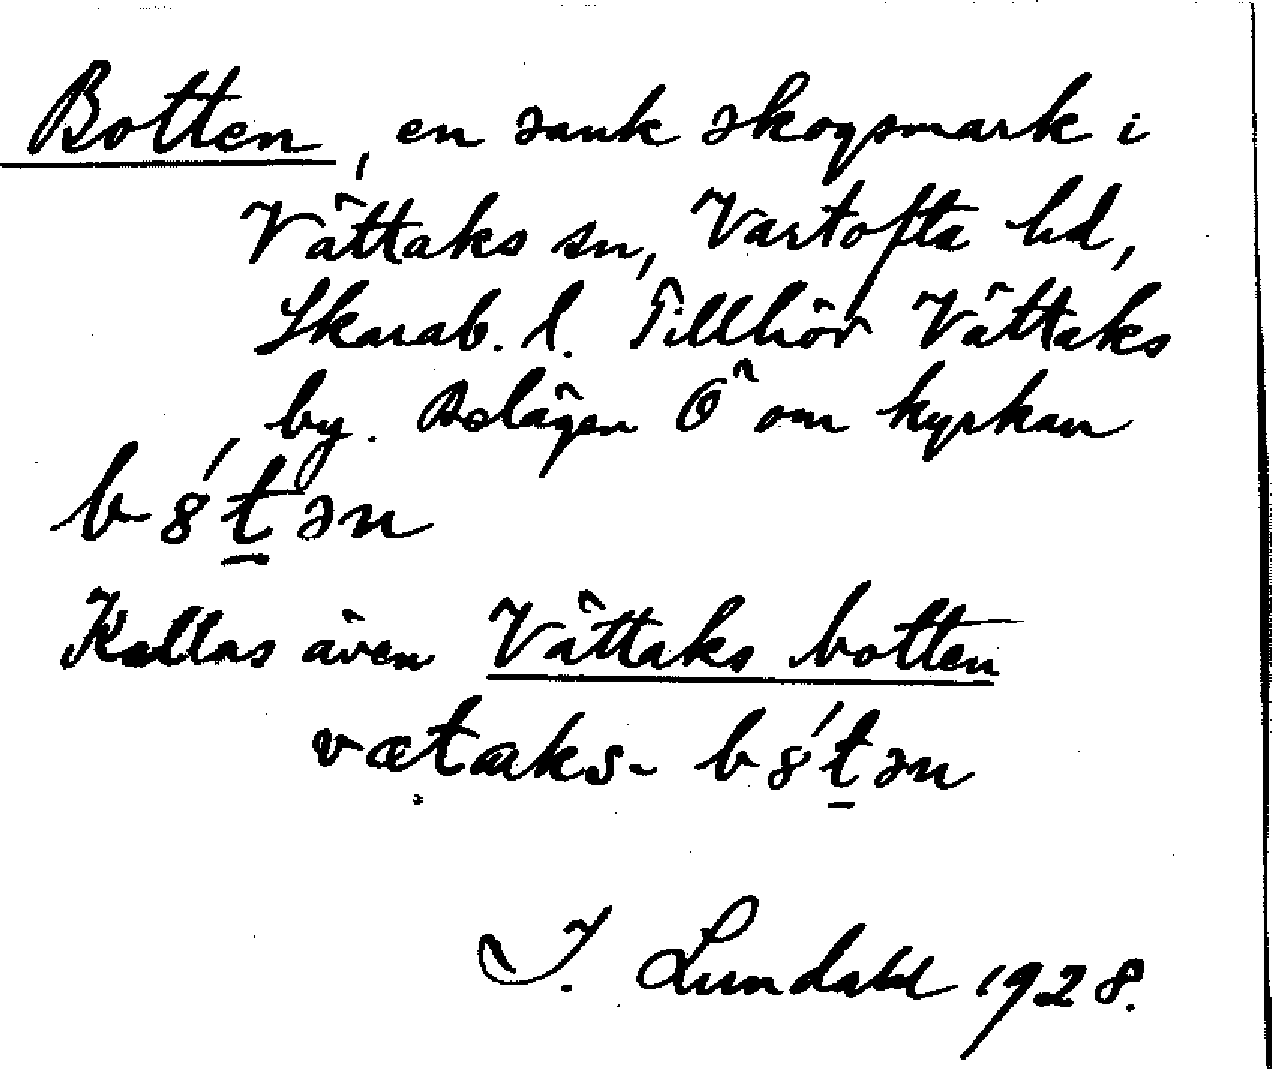 Botten, en sank skogsmark i
Vättaks sn, Vartofta hd,
Skarab. l. Tillhör Vättaks
by. Belägen Ö om kyrkan
b8́t̠ən
Kallas även Vättaks botten
vætaks- b8́t̠ən
I. Lundahl 1928.